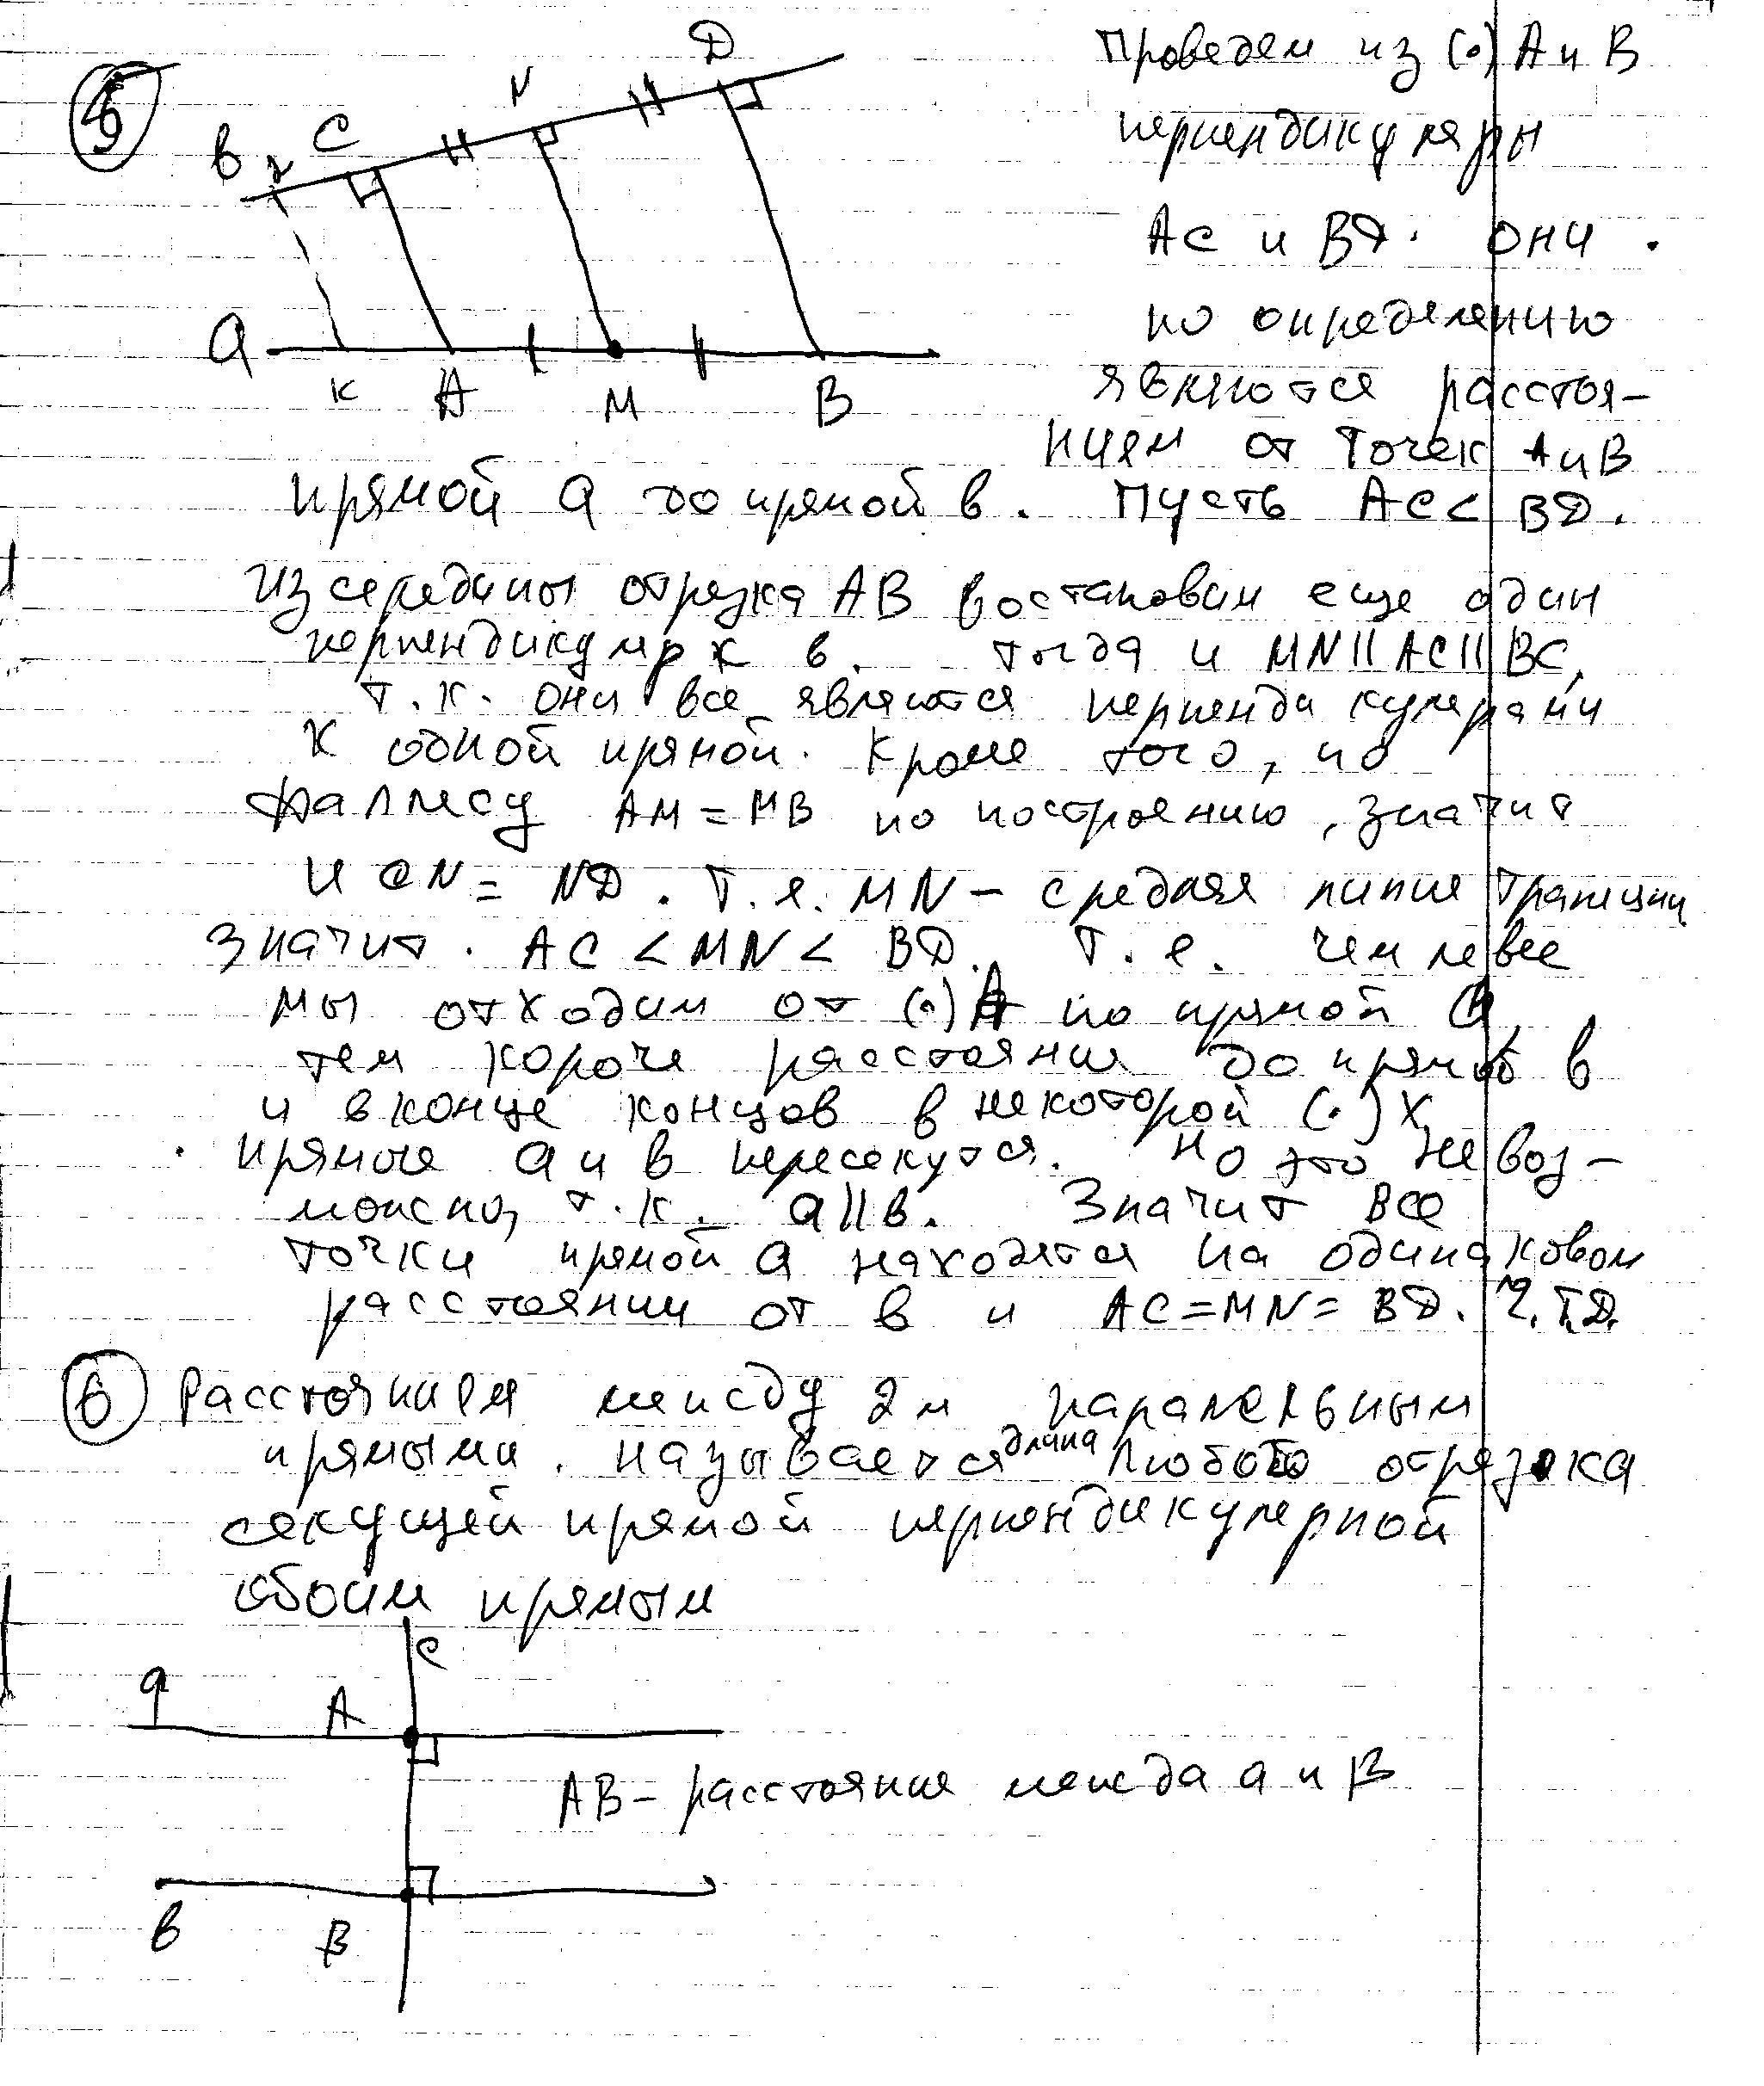 5
Проведем из (·) А и В
перпендикуляры
АС и ВД. они
по определению
являются расстоя-
нием от точек А и В
прямой а до прямой в. Пусть АС < ВД.
Из середины отрезка АВ востановим еще один
перпендикуляр к в. тогда и MN || АС || ВС,
т.к. они все являются перпендикулярами
к одной прямой. Кроме того, по
Фаллесу АМ = МВ по построению, значит
и СN = ND. Т.е. MN - средняя линия трапеции
значит. АС < MN < ВД. Т.е. чем левее
мы отходим от (·) А по прямой а,
тем короче расстояние до прямой в
и в конце концов в некоторой (·) Х
прямые а и в пересекутся. Но это невоз-
можно, т.к. а || в. Значит все
точки прямой а находятся на одинаковом
расстоянии от в и АС = MN = ВД. Ч.Т.Д.
6 Расстоянием между 2м паралельным
прямыми. называется длина любого отрезка
секущей прямой перпендикулярной
обоим прямым
с
а А
АВ - расстояние между а и В
в В
в С N Д
а К А М В